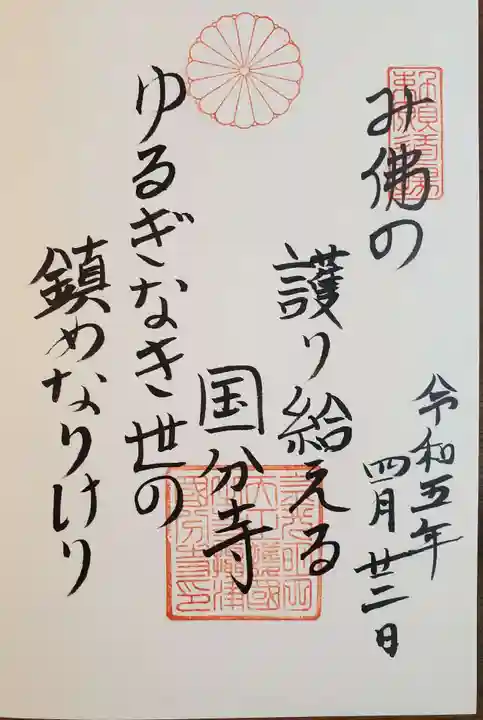 勅願道場
み佛の
護り給える
国分寺
ゆるぎなき世の
鎮めなりけり
令和五年
四月廿二日